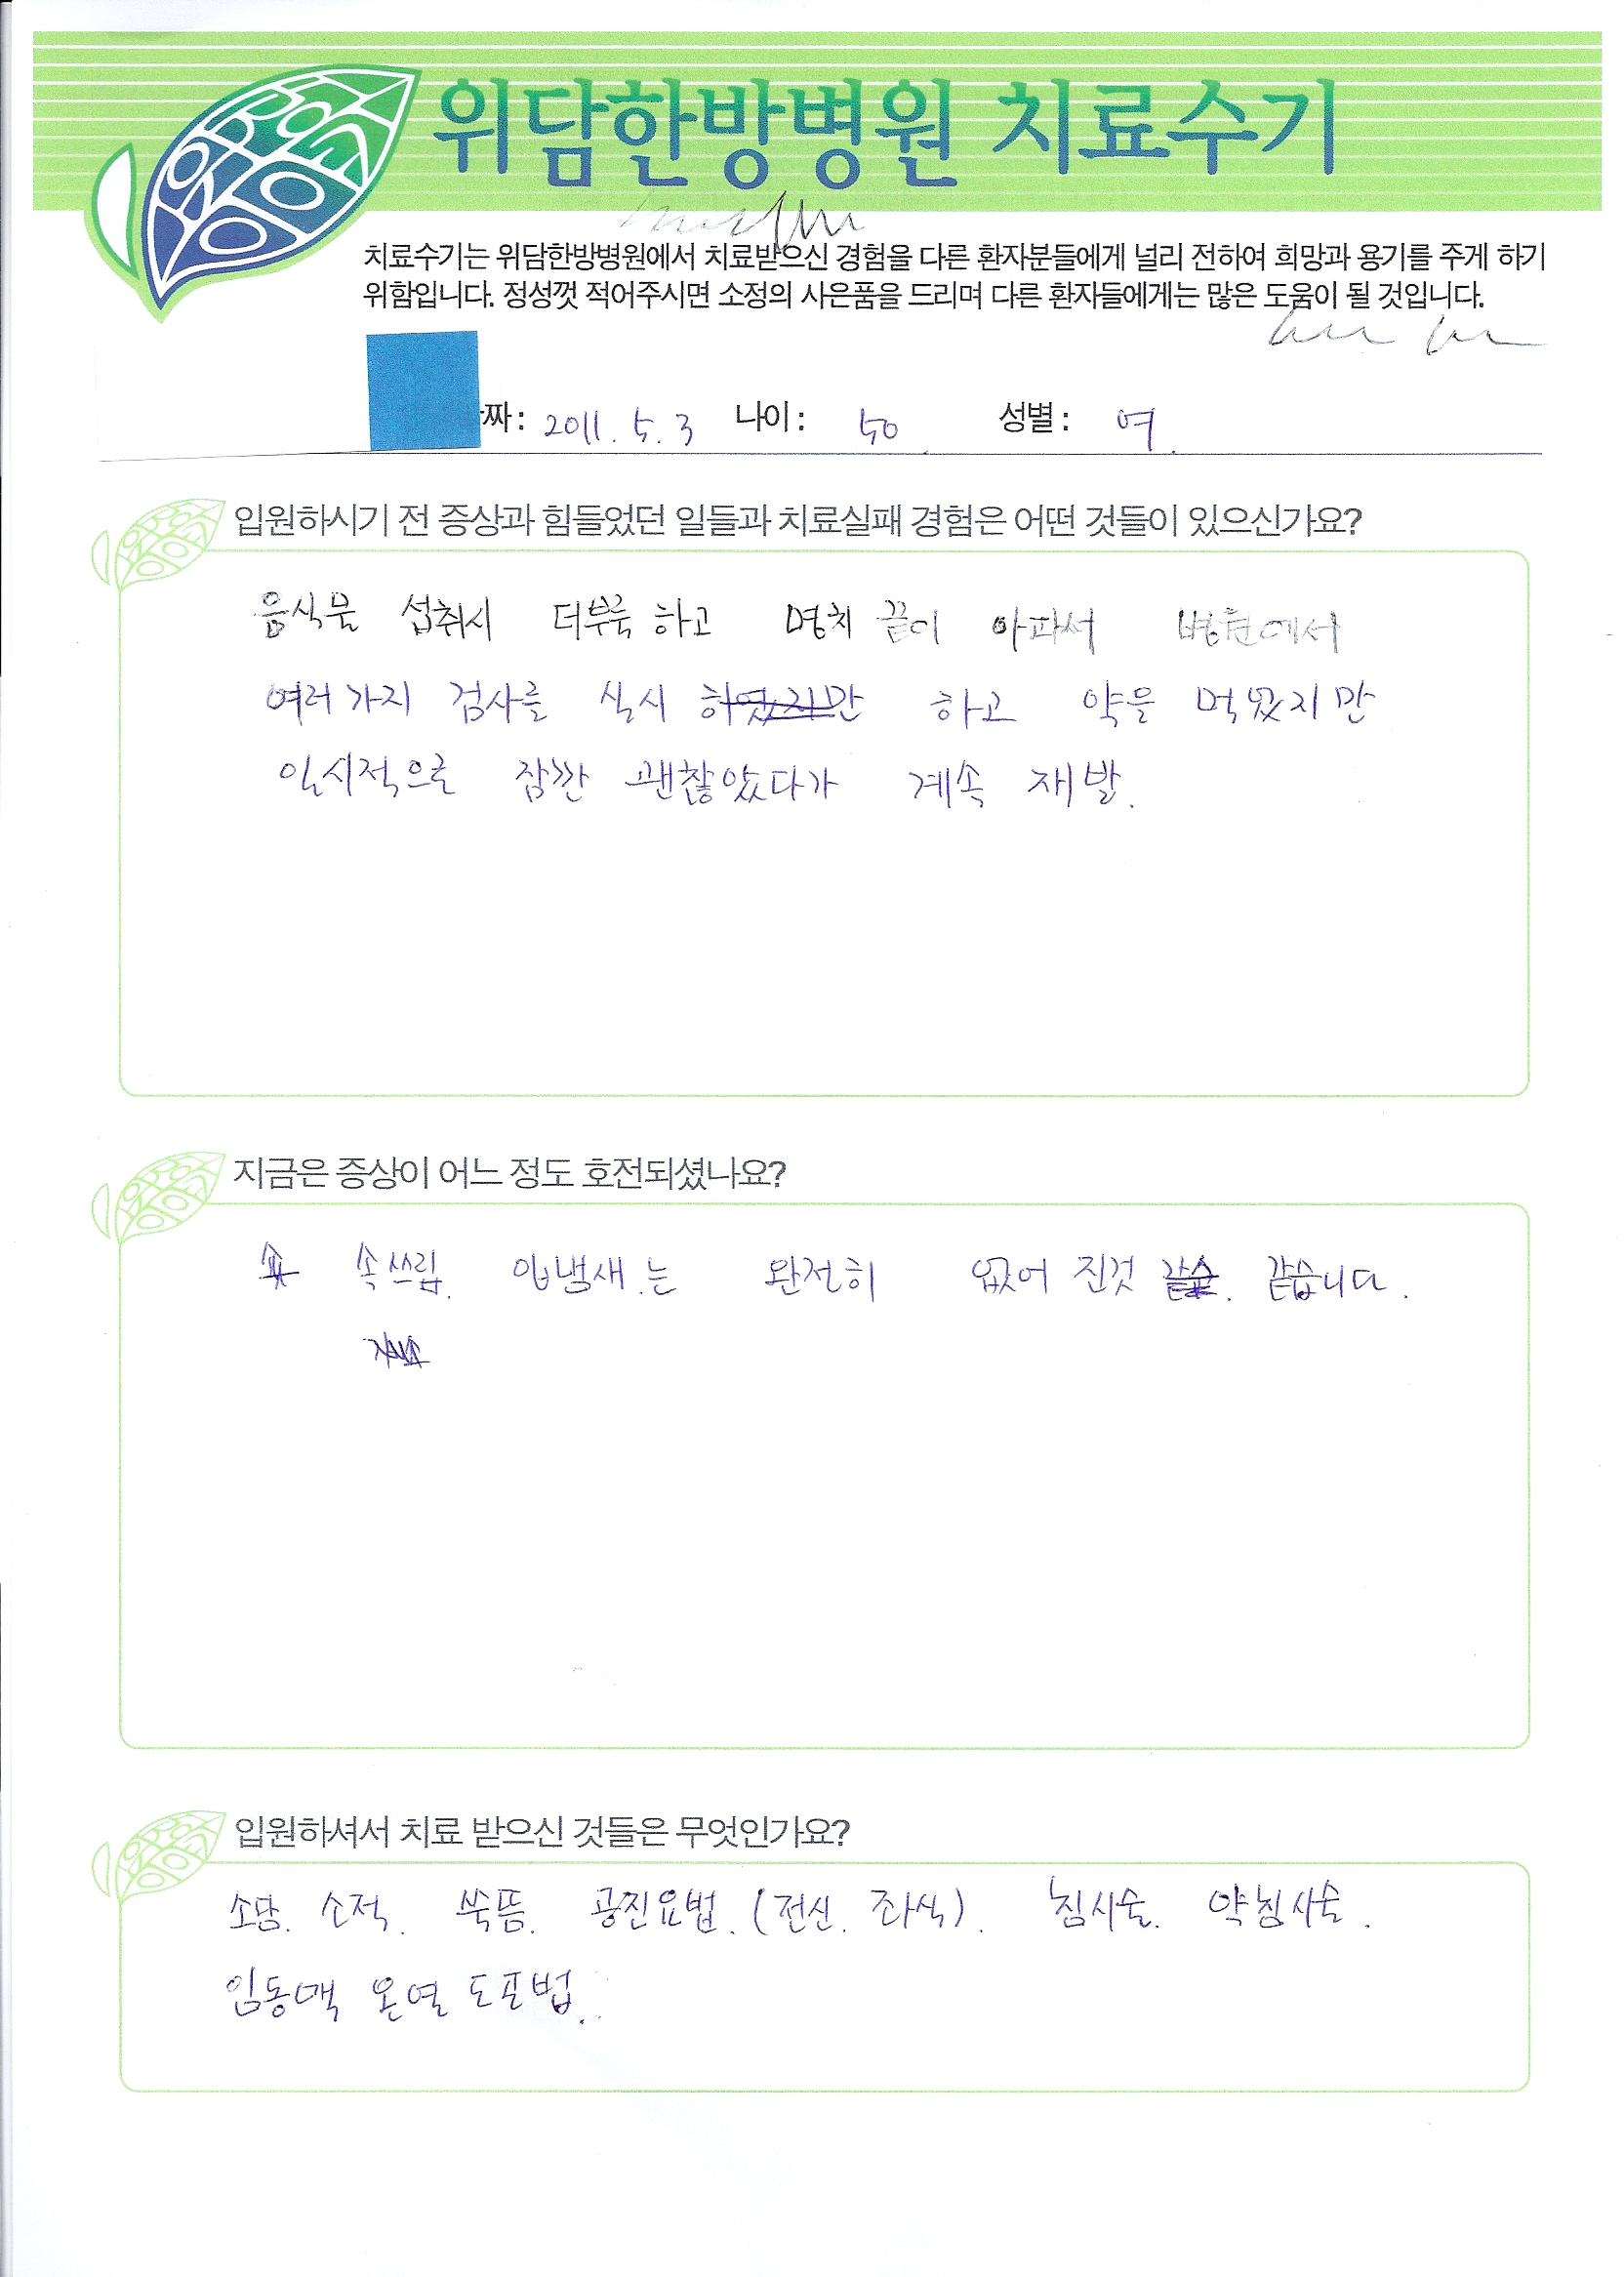 위담한방병원 치료수기
치료수기는 위담한방병원에서 치료받으신 경험을 다른 환자분들에게 널리 전하여 희망과 용기를 주게 하기
위함입니다. 정성껏 적어주시면 소정의 사은품을 드리며 다른 환자들에게는 많은 도움이 될 것입니다.
짜 : 2011. 5. 3 나이 : 50 성별 : 여
입원하시기 전 증상과 힘들었던 일들과 치료실패 경험은 어떤 것들이 있으신가요?
음식물 섭취시 더부룩 하고 명치 끝이 아파서 병원에서
여러가지 검사를 실시 하였지만 하고 약을 먹었지만
일시적으로 잠깐 괜찮았다가 계속 재발.
지금은 증상이 어느 정도 호전되셨나요?
속쓰림. 입냄새.는 완전히 없어 진것 같습니다.
입원하셔서 치료 받으신 것들은 무엇인가요?
소담. 소적. 쑥뜸. 공진요법. (전신. 좌식). 침시술. 약침시술.
임동맥 온열 도포법.